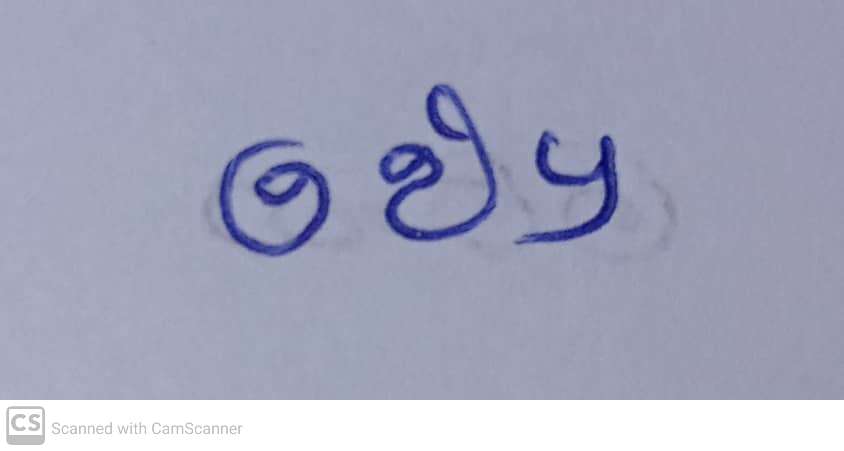 ତଥ୍ୟ
Scanned with CamScanner